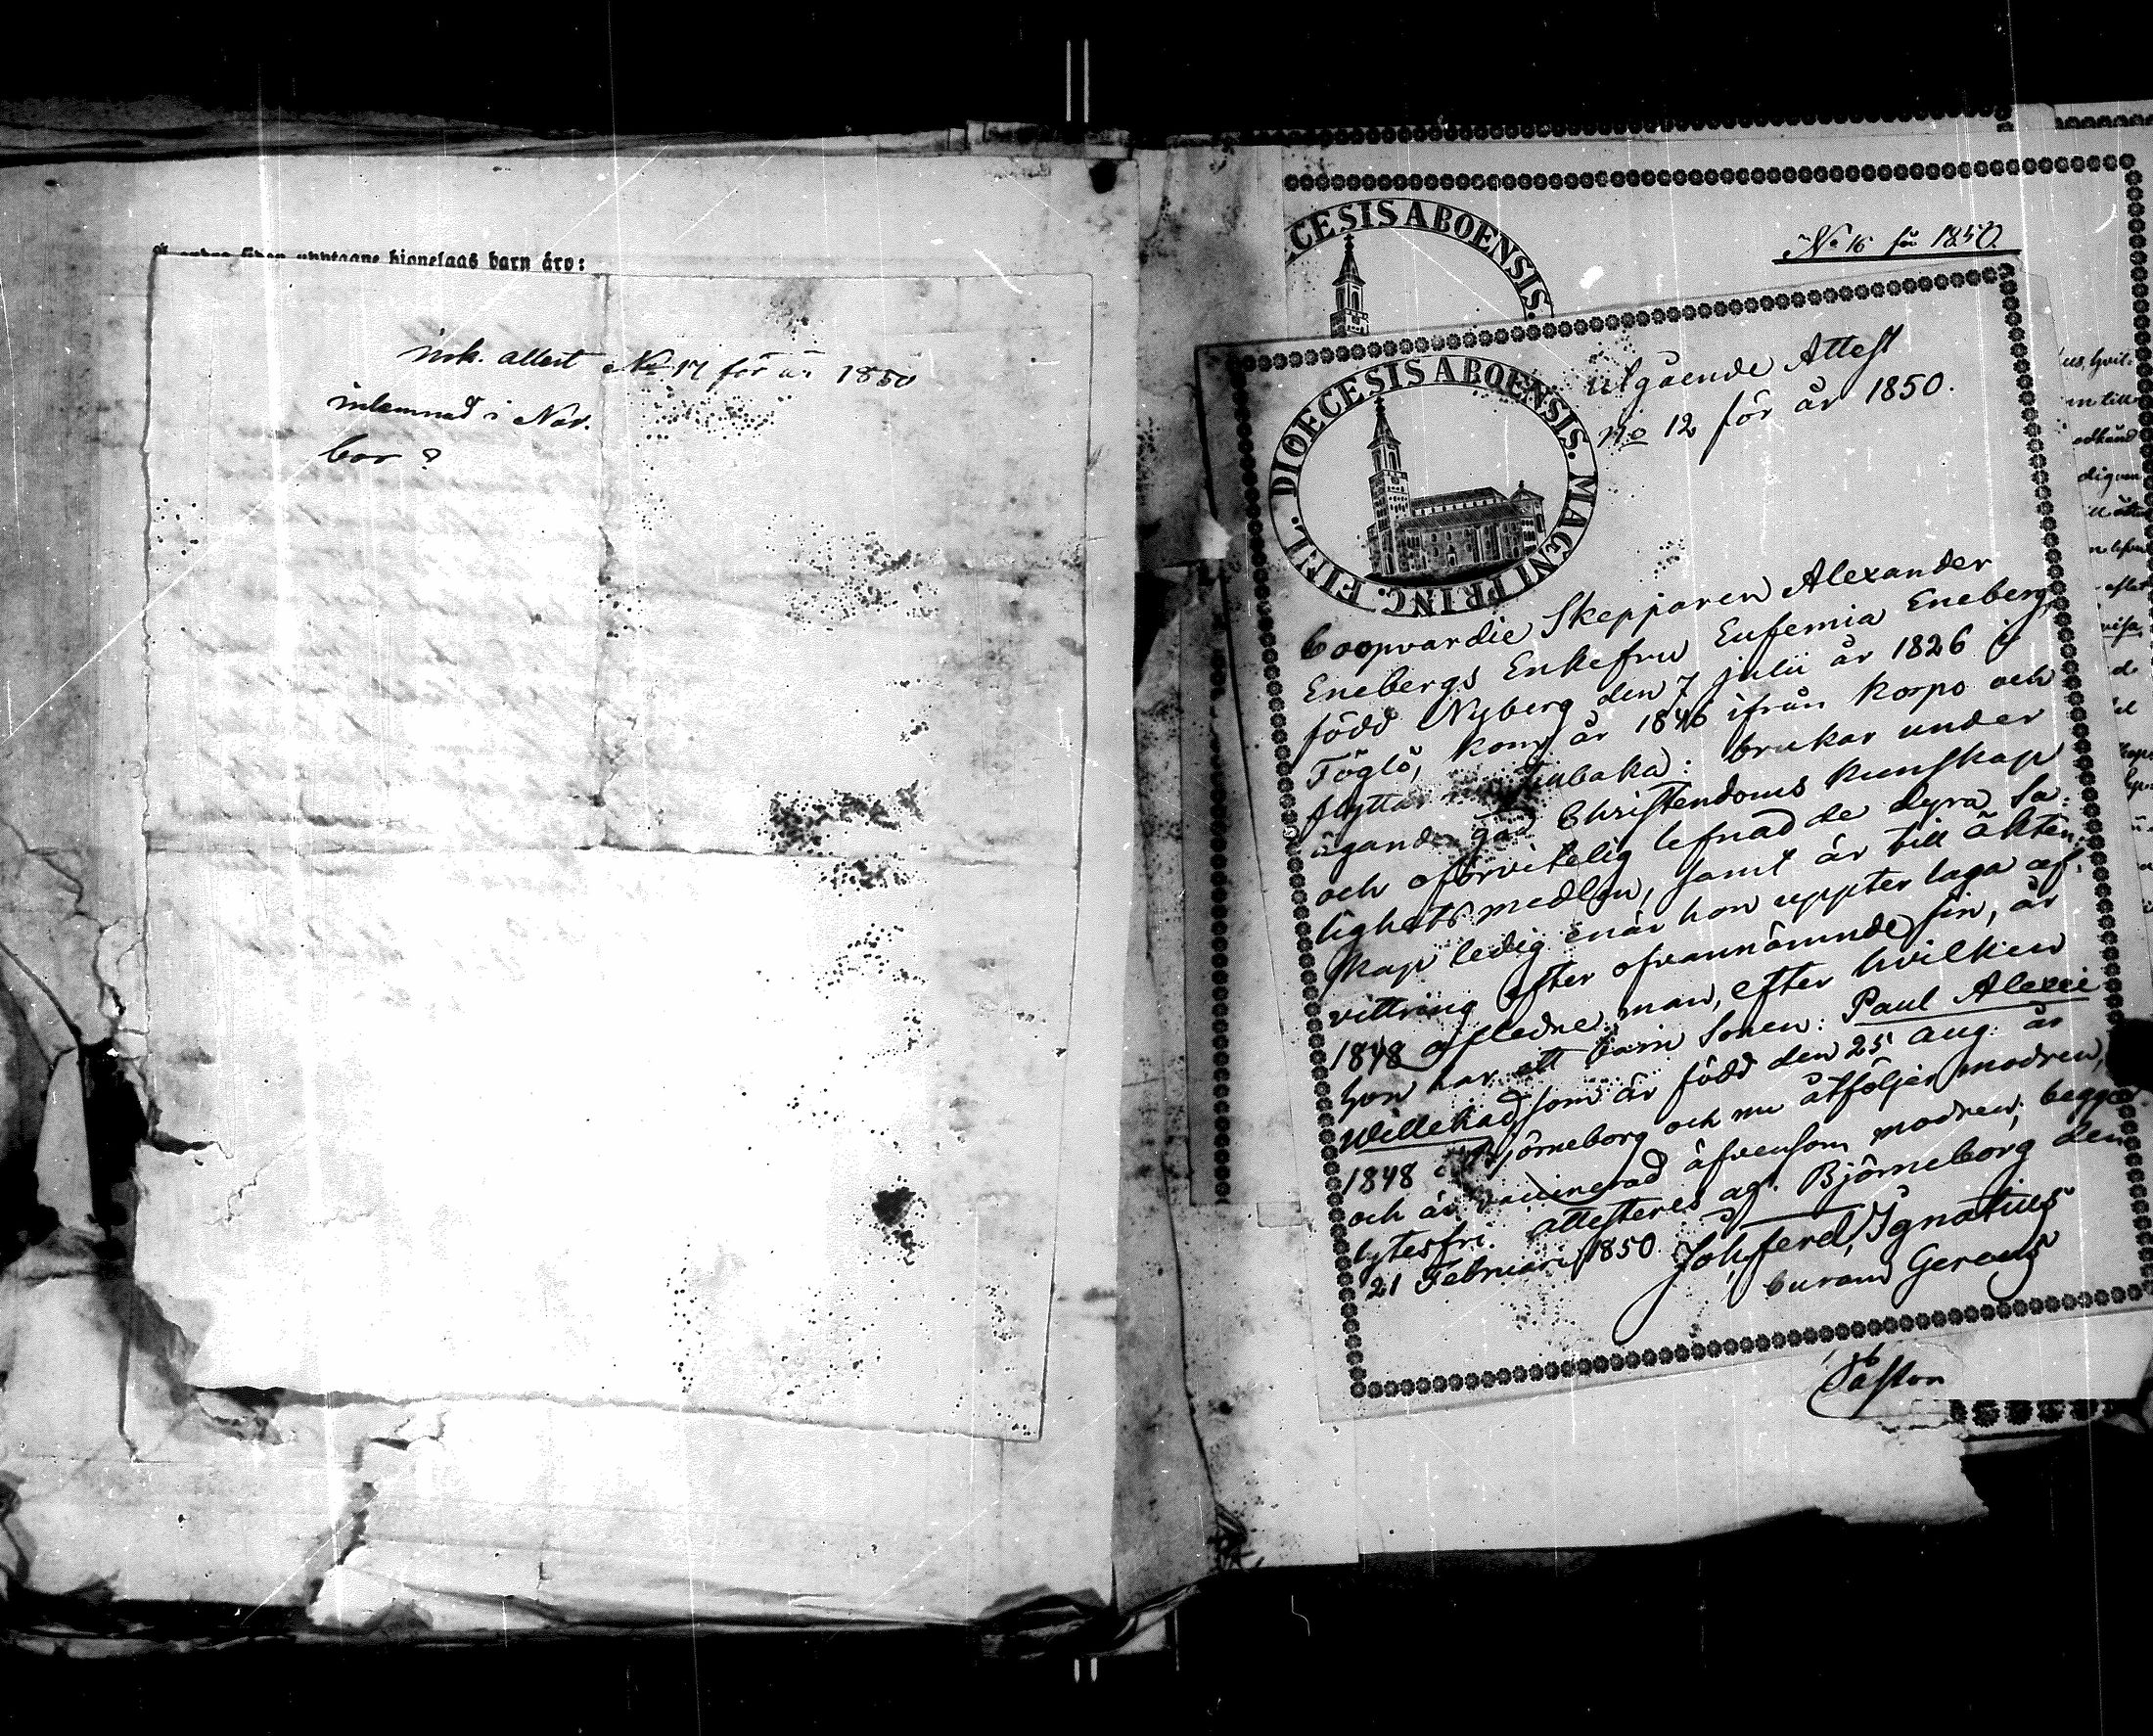 upptagne hjonelags barn äro:
ink. attest No 17 för år 1850
inlemnad i Nov.
ber
CESIS ABOENSIS.
No 16 för 1850
DIOECESIS ABOENSIS. MAGNI PRINC. FINL.
Utgående Attest
No 12 för år 1850.
Coopvardie Skepparen Alexander
Enebergs Enkefru Eufemia Eneberg,
född Nyberg den 7 julii år 1826 i
Föglö, kom år 1846 ifrån Korpo och
flyttar tillbaka: brukar under
ägande god Christendoms kunskap
och oförvitelig lefnad de dyra Sa-
lighets medlen, samt är till äkten-
skap ledig enär hon uppter laga af-
vittring efter ofvannämnde sin, år
1848 aflidne man, efter hvilken
hon har ett barn Sonen: Paul Alexei
Willehad, som är född den 25 Aug. år
1848 i Björneborg och nu åtföljer modren,
och är vaccinerad äfvensom modren, begge
lytesfri. attesteres af. Björneborg den
21 Februari 1850.
Joh. Ferd. Ignatius
curam Gerens
Pastor